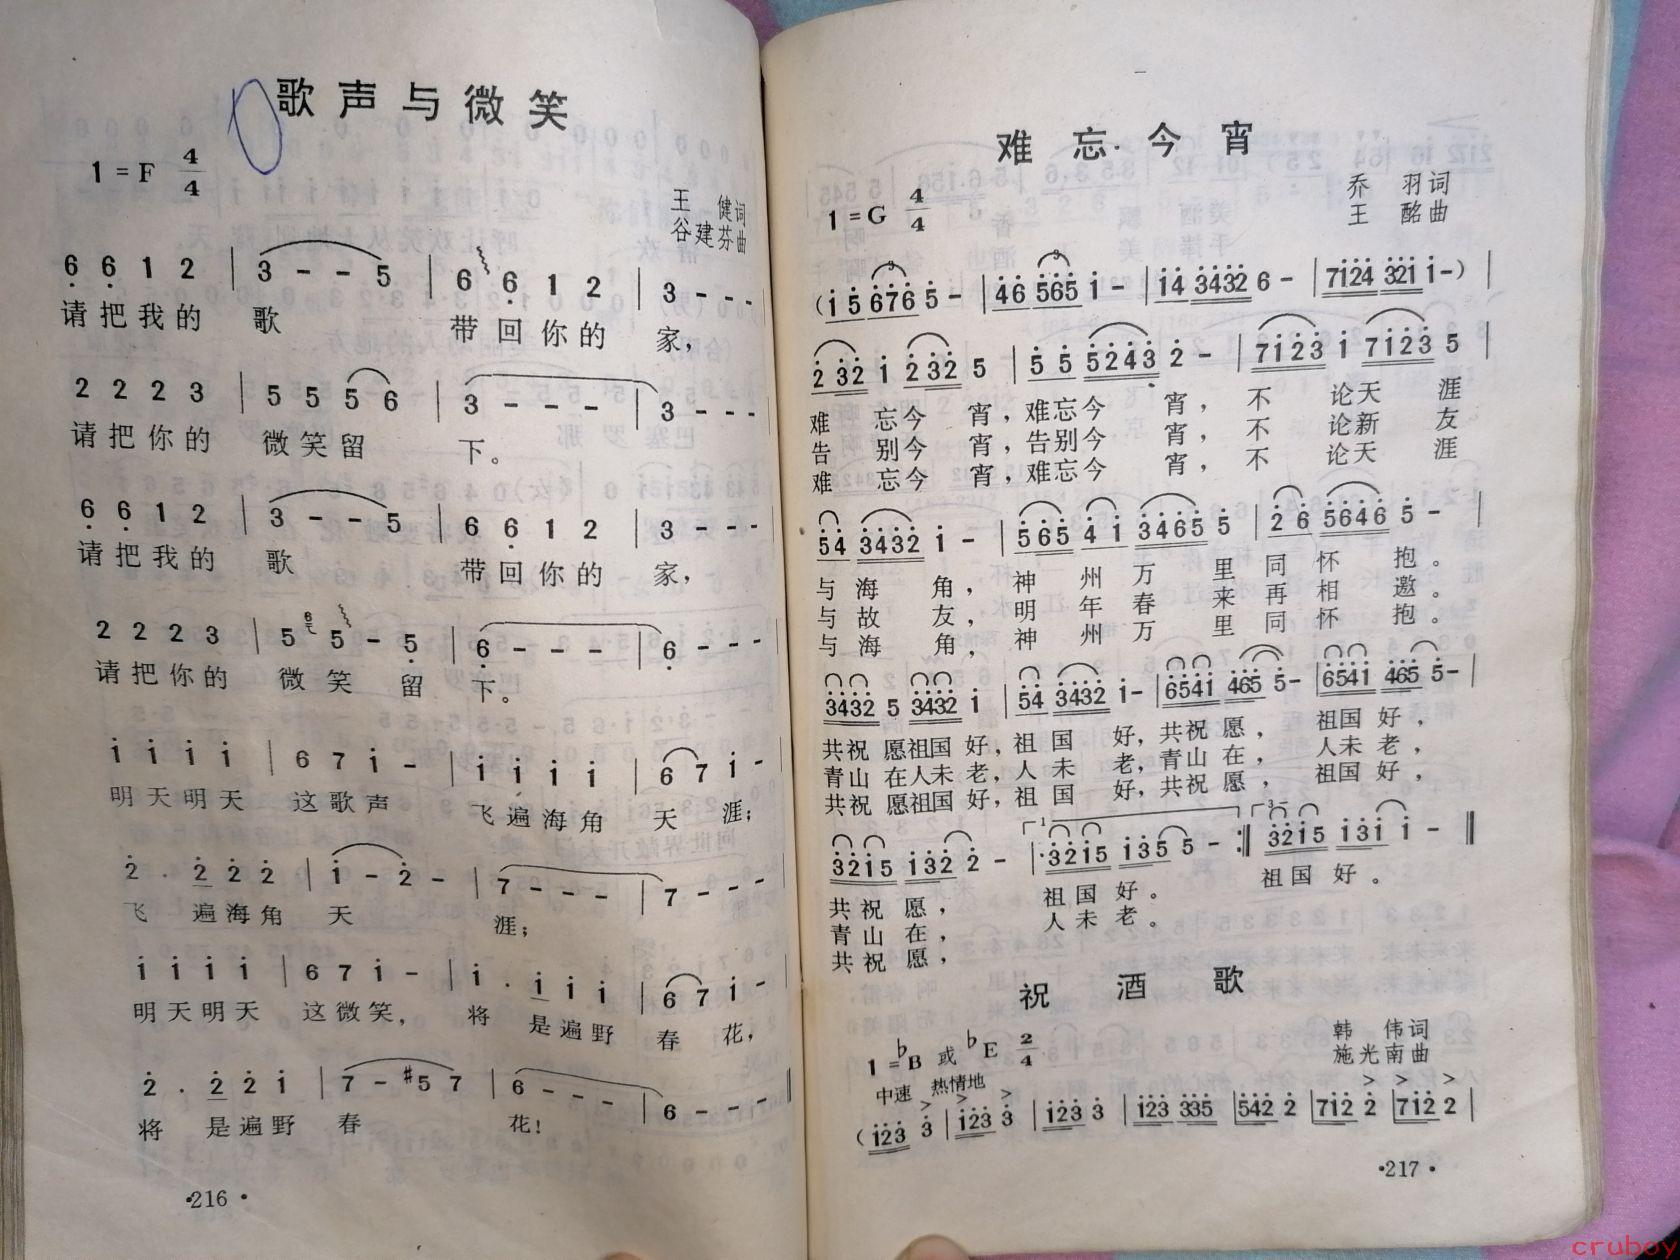 歌声与微笑
1=F 4/4
王 健词
谷建芬曲
6 6 1 2 | 3 - - 5 | 6 6 1 2 | 3 - - - |
请把我的 歌 带回你的 家，
2 2 2 3 | 5 5 5 6 | 3 - - - | 3 - - - |
请把你的 微笑留 下。
6 6 1 2 | 3 - - 5 | 6 6 1 2 | 3 - - - |
请把我的 歌 带回你的 家，
2 2 2 3 | 5 6 5 - 5 | 6 - - - | 6 - - - |
请把你的 微笑 留 下。
i i i i | 6 7 i - | i i i i | 6 7 i - |
明天明天 这歌声 飞遍海角 天 涯；
2 · 2 2 2 | i - 2 - | 7 - - - | 7 - - - |
飞 遍海角 天 涯；
i i i i | 6 7 i - | i · i i i | 6 7 i - |
明天明天 这微笑， 将 是遍野 春 花，
2 · 2 2 i | 7 - #5 7 | 6 - - - | 6 - - - ‖
将 是遍野 春 花！
·216·
难忘今宵
1=G 4/4
乔 羽词
王 酩曲
(i 5 6 7 6 5 - | 4 6 5 6 5 i - | i 4 3 4 3 2 6 - | 7 i 2 4 3 2 i i -) |
2 3 2 i 2 3 2 5 | 5 5 5 2 4 3 2 - | 7 i 2 3 i 7 i 2 3 5 |
难 忘今 宵，难忘今 宵， 不 论天 涯
告 别今 宵，告别今 宵， 不 论新 友
难 忘今 宵，难忘今 宵， 不 论天 涯
5 4 3 4 3 2 i - | 5 6 5 4 i 3 4 6 5 5 | 2 6 5 6 4 6 5 - |
与 海 角， 神 州 万 里 同 怀 抱。
与 故 友， 明 年 春 来 再 相 邀。
与 海 角， 神 州 万 里 同 怀 抱。
3 4 3 2 5 3 4 3 2 i | 5 4 3 4 3 2 i - | 6 5 4 i 4 6 5 5 - | 6 5 4 i 4 6 5 5 - |
共祝 愿祖国 好，祖 国 好，共祝 愿， 祖国 好，
青山 在人未 老，人 未 老，青山 在， 人未 老，
共祝 愿祖国 好，祖 国 好，共祝 愿， 祖国 好，
3 2 i 5 i 3 2 2 - | 1 3 2 i 5 i 3 5 5 - :‖ 3 3 2 i 5 i 3 i i - ‖
共祝 愿， 祖国 好。 祖国 好。
青山 在， 人未 老。
共祝 愿，
祝酒歌
1=♭B 或 ♭E 2/4
韩 伟词
施光南曲
中速 热情地
(i 2 3 3 | i 2 3 3 | i 2 3 3 | i 2 3 3 3 5 | 5 4 2 2 | 7 i 2 2 | 7 i 2 2 |
·217·
cruboy